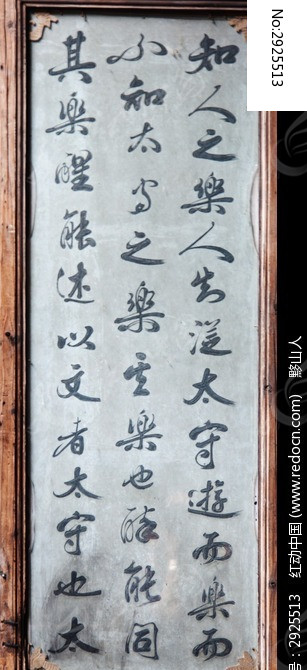 知人之樂人知從太守遊而樂而
不知太守之樂其樂也醉能同
其樂醒能述以文者太守也太
No:2925513
红动中国 (www.redocn.com) 黟山人
号：2925513